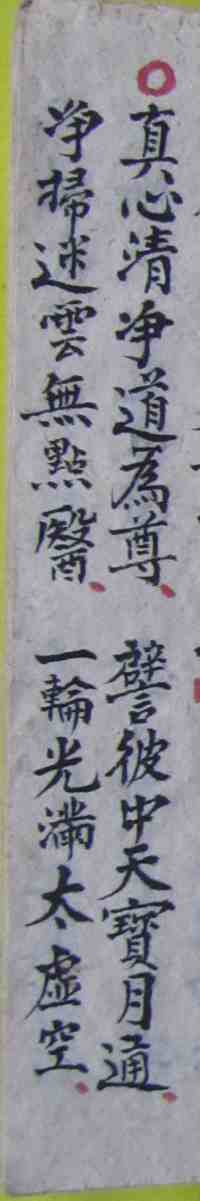 ○真心清净道為尊、譬彼中天寶月通、
净掃迷雲無點醫、一輪光滿太虛空、